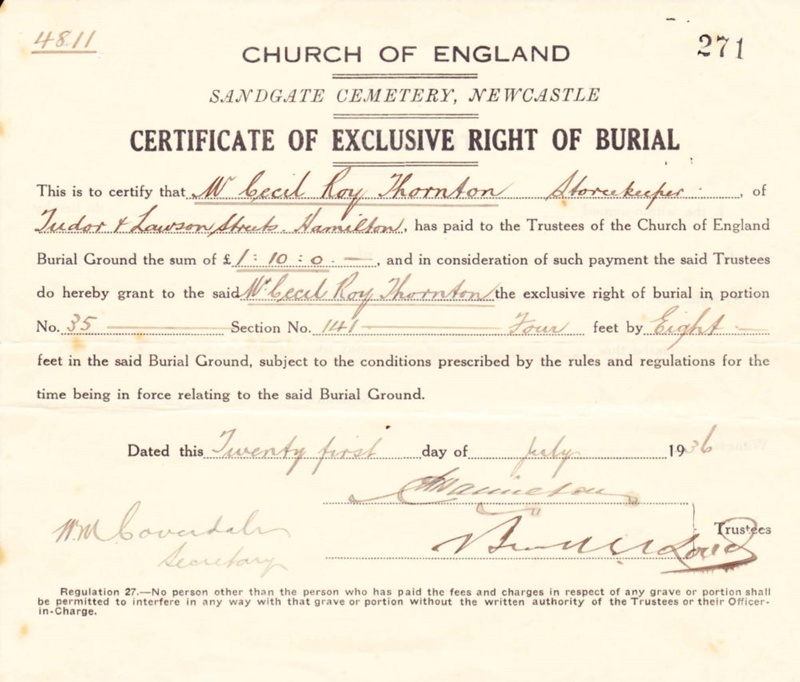 4811
271
CHURCH OF ENGLAND
SANDGATE CEMETERY, NEWCASTLE
CERTIFICATE OF EXCLUSIVE RIGHT OF BURIAL
This is to certify that Mr Cecil Roy Thornton Storekeeper, of
Tudor & Lawson Streets Hamilton, has paid to the Trustees of the Church of England
Burial Ground the sum of £1:10:0.—, and in consideration of such payment the said Trustees
do hereby grant to the said Mr Cecil Roy Thornton the exclusive right of burial in portion
No. 35 Section No. 141 Four feet by Eight
feet in the said Burial Ground, subject to the conditions prescribed by the rules and regulations for the
time being in force relating to the said Burial Ground.
Dated this Twenty first day of July 1936
Trustees
W.M Coverdale
Secretary
Regulation 27.—No person other than the person who has paid the fees and charges in respect of any grave or portion shall
be permitted to interfere in any way with that grave or portion without the written authority of the Trustees or their Officer-
in-Charge.